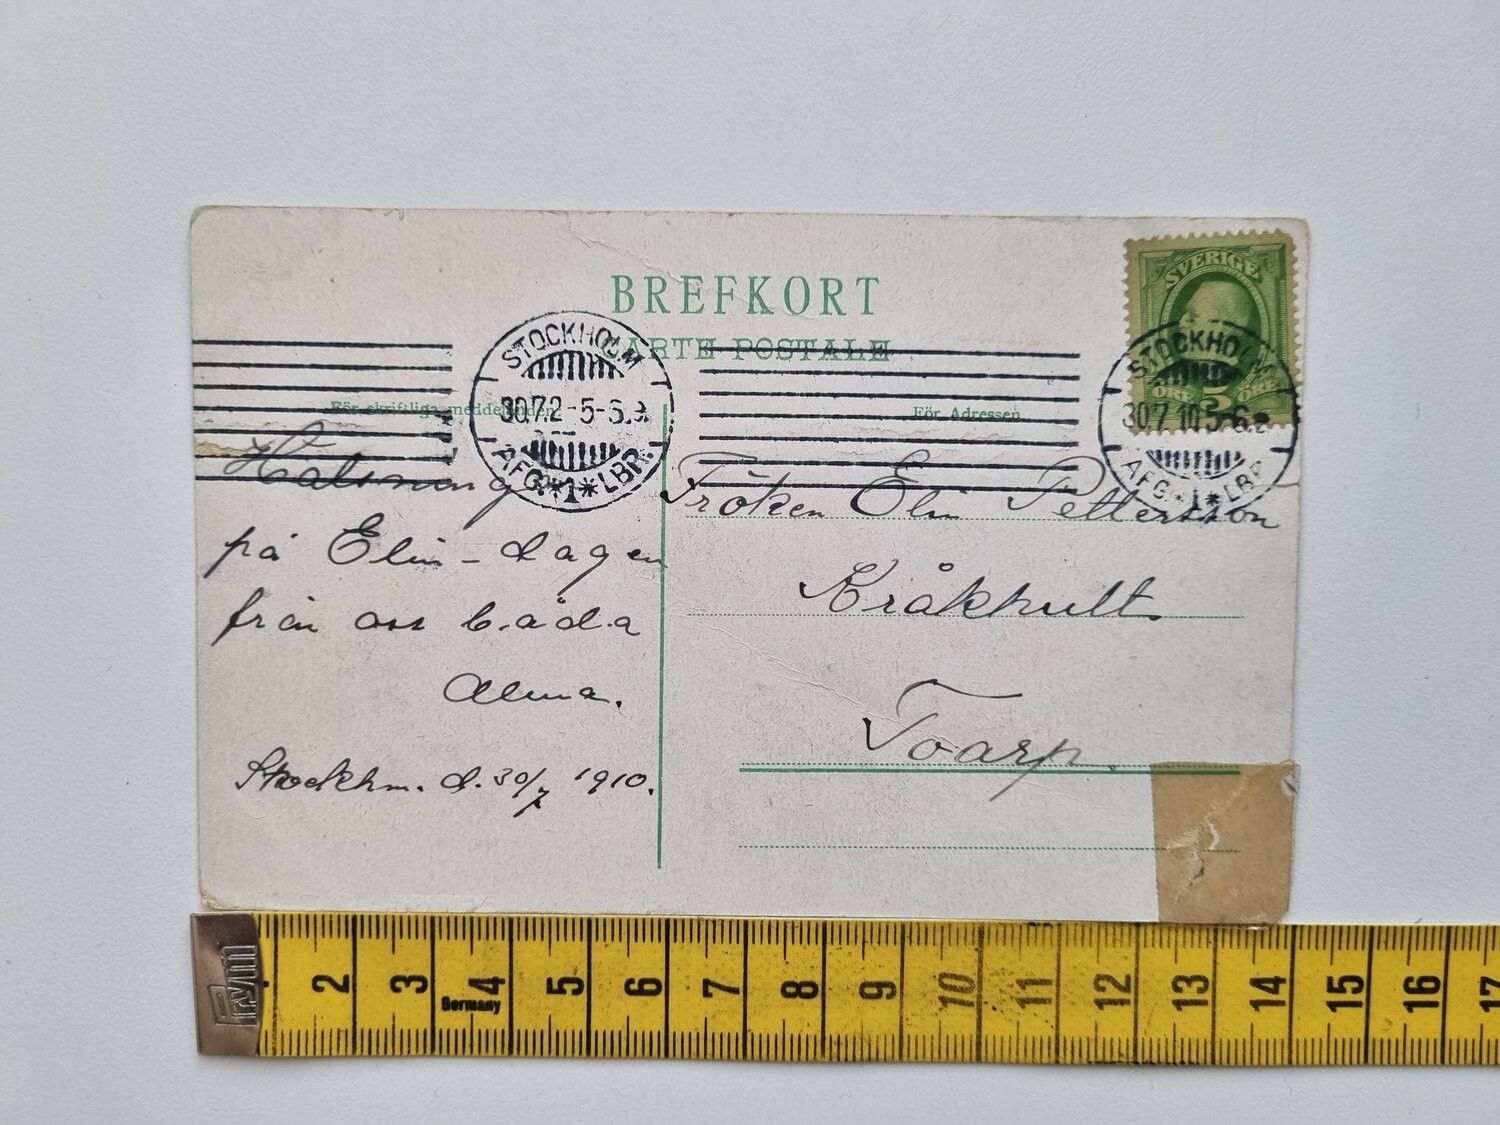 BREFKORT
CARTE POSTALE
SVERIGE
ÖRE 5 ÖRE
STOCKHOLM
30.7.10 5-6 e
AFG. *1* LBR.
STOCKHOLM
30.7.2 -5-6 e.
AFG. *1* LBR.
För skriftliga meddelanden
För Adressen
Halsning
på Elin-dagen
från oss båda
Alma.
Stockhm. d. 30/7 1910.
Fröken Elin Pettersson
Kråkhult
Toarp.
Prym
1 2 3 4 5 6 7 8 9 10 11 12 13 14 15 16 17
Germany